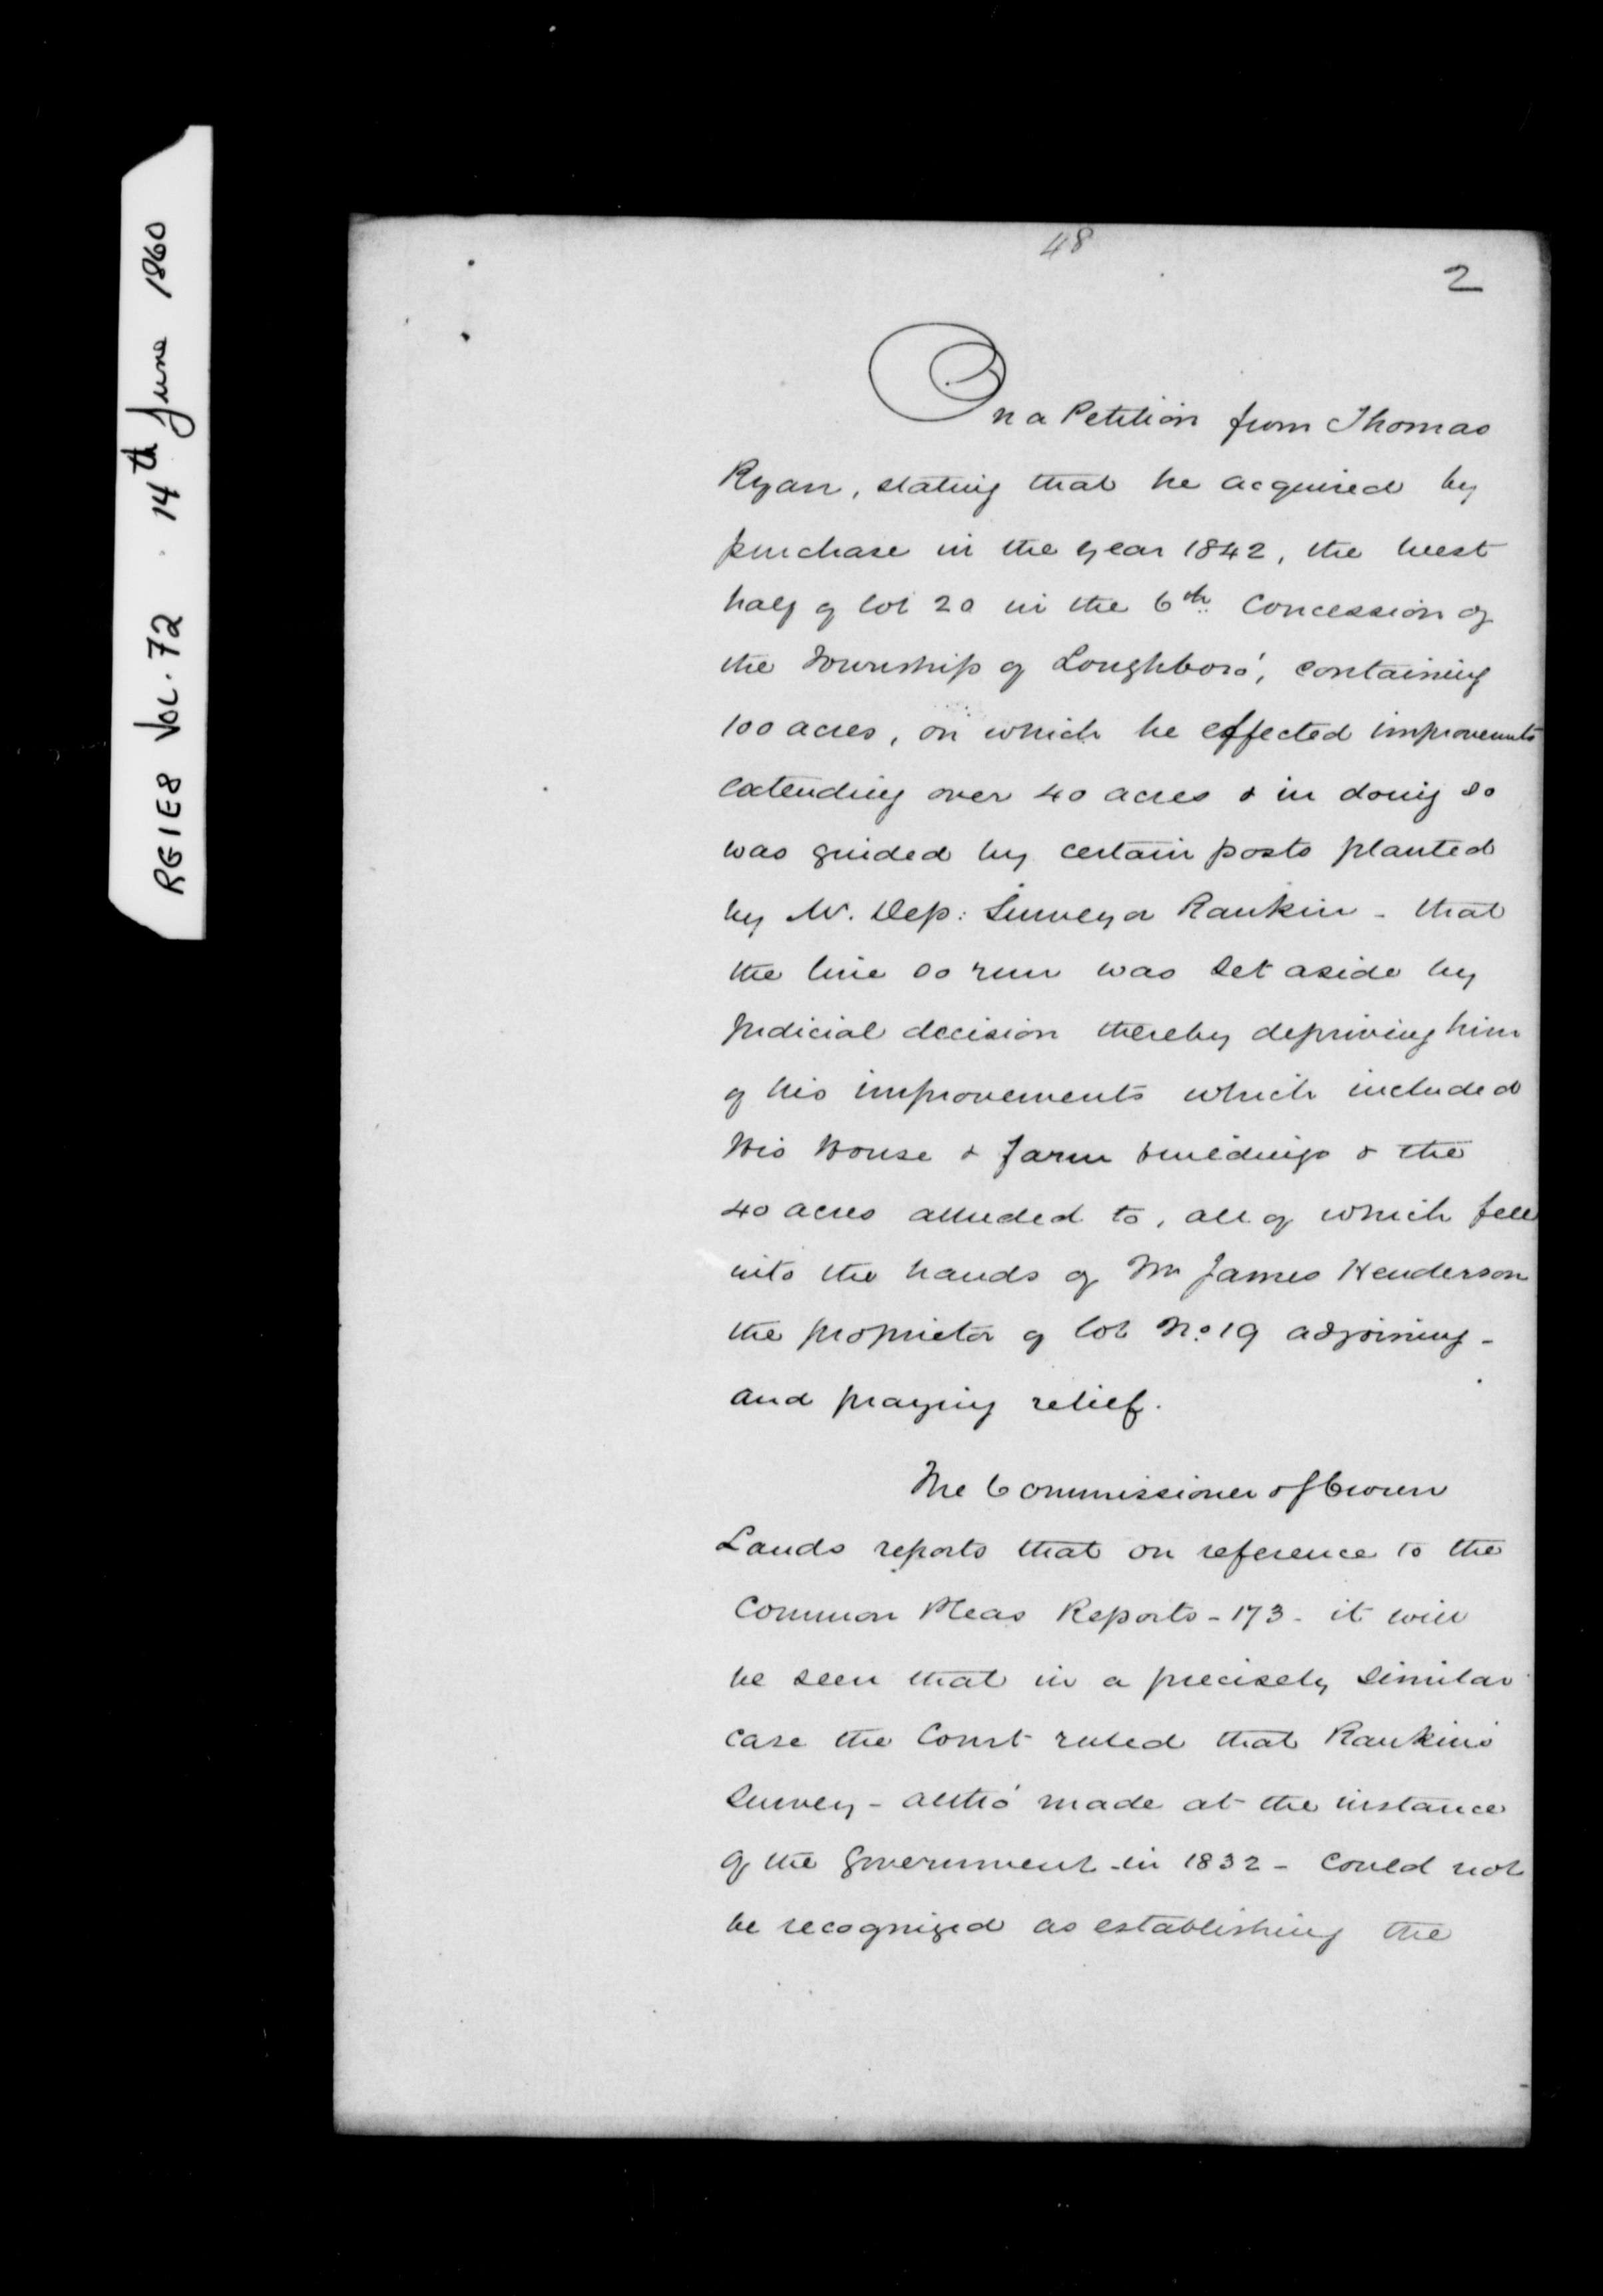 RG1E8 Vol. 72 14th June 1860
48
2
On a Petition from Thomas
Ryan, stating that he acquired by
purchase in the year 1842, the West
half of lot 20 in the 6th Concession of
the Township of Loughboro', containing
100 acres, on which he effected improvements
extending over 40 acres & in doing so
was guided by certain posts planted
by Mr. Dep: Surveyor Rankin - that
the line so run was set aside by
judicial decision thereby depriving him
of his improvements which included
His House & farm buildings & the
40 acres alluded to, all of which fell
into the hands of Mr James Henderson
the proprietor of lot No. 19 adjoining -
and praying relief.
The Commissioner of Crown
Lands reports that on reference to the
Common Pleas Reports - 173 - it will
be seen that in a precisely similar
case the Court ruled that Rankin's
Survey - altho' made at the instance
of the Government in 1832 - could not
be recognized as establishing the